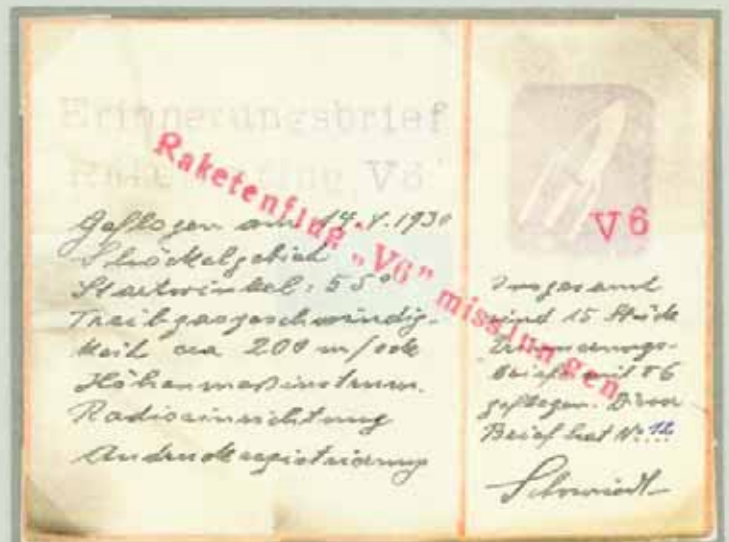 Erinnerungsbrief
Raketenflug V6
Raketenflug "V6" misslungen
Geflogen am 14.V.1930
Schöckelgebiet
Startwinkel: 55°
Treibgasgeschwindig-
keit ca 200 m/sek
Höhenmeßinstrum.
Radioeinrichtung
Andruckregistrierung
V6
Insgesamt
sind 15 Stück
Erinnerungs-
briefe mit V6
geflogen. Dieser
Brief hat No. 12
Schmiedl